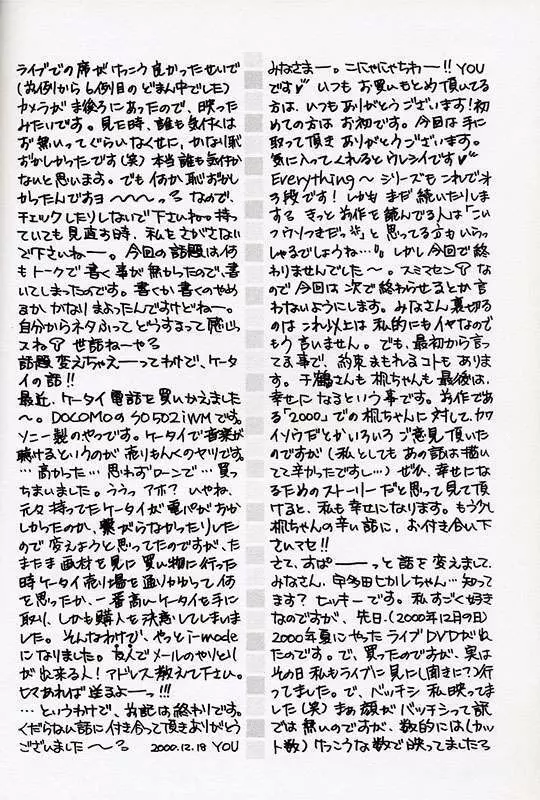 みなさまー。こにゃにゃちわー!! YOU
です♥ いつもお買いもとめ頂いてる
方は、いつもありがとうございます!初
めての方はお初です。今回は手に
取って頂きありがとうございます。
気に入ってくれるとウレシイです♥
Everything〜シリーズもこれでオ
3段です!しかもまだ続いたりしま
する。きっと前作を読んでる人は「こい
つウソつきだっ」と思ってる方もいらっ
しゃるでしょうね…。しかし今回で終
わりませんでした〜。スミマセン な
ので今回は次で終わらせるとか言
わないようにします。みなさん裏切る
のはこれ以上は私的にもイヤなので
もう言いません。でも、最初から言っ
てる事で、約束まもれるコトもありま
す。千鶴さんも梶ちゃんも最後は、
幸せになるという事です。前作であ
る「2000」での梶ちゃんに対して、カワ
イソウだとかいろいろご意見頂いた
のですが(私としてもあの話は描い
てて辛かったですし…)ぜひ、幸せにな
るためのストーリーだと思って見て頂
けると、私も幸せになります。もう少し
梶ちゃんの辛い話に、お付き合い下
さいマセ!!
さて、すぱーーーっと話を変えまして、
みなさん、宇多田ヒカルちゃん…知って
ます?ヒッキーです。私すごく好き
なのですが、先日(2000年12月9日)
2000年夏にやったライブDVDが出れ
たのです。で、買ったのですが、実は
その日私もライブに見に(聞きに?)行
ってました。で、バッチシ私映ってま
した(笑)まあ顔がバッチシって訳
では無いのですが、数的には(カッ
ト数)けっこうな数で映ってましたう
ライブでの席がけっこう良かったせいで
(前例から6例目のどまん中でした)
カメラが真後ろにあったので、映った
みたいです。見た時、誰も気付くは
ず無いってぐらいなくせに、かなり恥
ずかしかったです(笑)本当誰も気付か
ないと思います。でも何か恥ずかし
かったんですョ〜〜〜っう なので、
チェックしたりしないで下さいね。持っ
ていても見直す時、私をさがさない
で下さいねー。今回の話題は何
もトークで書く事が無かったので、書
いてしまったのです。書くか書くのやめ
るか、かなりまよったんですけどねー。
自分からネタふってどうするって感じっ
スね 世話ねーやう
話題変えちゃえーってわけで、ケータ
イの話!!
最近、ケータイ電話を買いかえました
〜。DOCOMOのSO502iWMです。
ソニー製のやつです。ケータイで音楽が
聴けるというのが売りもんくのヤツです
…高かった…思わずローンで…買っ
ちまいました。ううっアホ? いやね、
元々持ってたケータイが電パがおか
しかったのか、繋がらなかったりした
ので変えようと思ってたのですが、た
またま画材を見に買い物に行った
時ケータイ売り場を通りかかって何
を思ったか、一番高いケータイを手に
取り、しかも購入を決意してしまいま
した。そんなわけで、やっとi-mode
になりました。友人でメールのやりとり
が出来る人!アドレス教えて下さい。
ヒマあれば送るよーっ!!!
…というわけで、お記は終わりです。
くだらない話に付き合って頂きありがとう
ございました〜〜う 2000.12.18 YOU